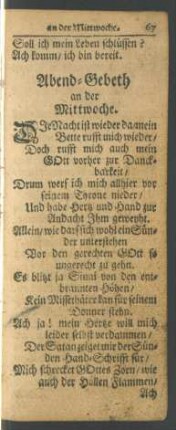 an der Mittwoche. 67
Soll ich mein Leben schlüssen?
Ach komm/ ich bin bereit.
Abend-Gebeth
an der
Mittwoche.
DIe Nacht ist wieder da/mein
Bette rufft mich wieder/
Doch rufft mich auch mein
GOtt vorher zur Danck-
barkeit/
Drum werf ich mich allhier vor
seinem Tyrone nieder/
Und habe Hertz und Hand zur
Andacht Ihm geweyht.
Allein/ wie darf sich wohl ein Sün-
der unterstehen
Vor den gerechten GOtt so
ungerecht zu gehn.
Es blitzt ja Sinai von den ent-
brannten Höhen/
Kein Missethäter kan für seinem
Donner stehn.
Ach ja! mein Hertze will mich
leider selbst verdammen/
Der Satan zeiget mir der Sün-
den Hand-Schrifft für/
Mich schrecket GOttes Zorn/ wie
auch der Höllen Flammen/
Ach